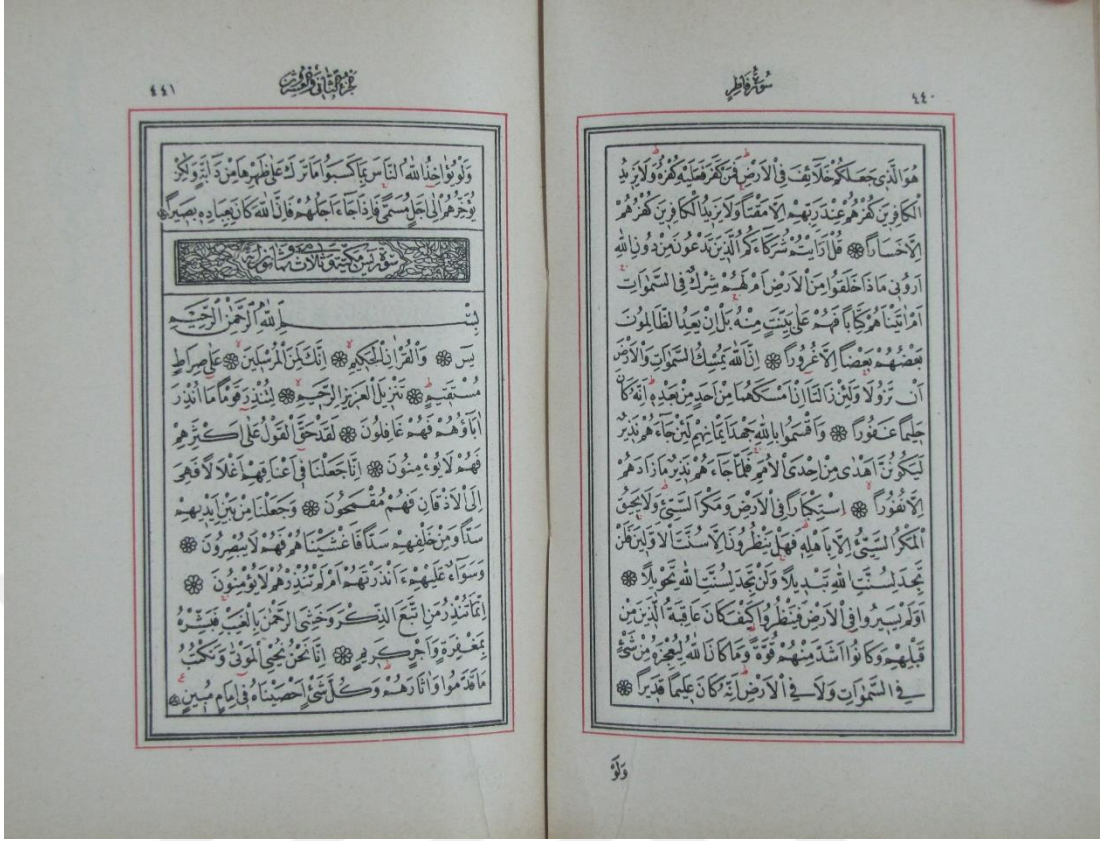 ٤٤٠
سُورَةُ فَاطِرٍ
هُوَ الَّذٖى جَعَلَكُمْ خَلَٓائِفَ فِى الْاَرْضِ فَمَنْ كَفَرَ فَعَلَيْهِ كُفْرُهُ وَلَا يَزٖيدُ
الْكَافِرٖينَ كُفْرُهُمْ عِنْدَ رَبِّهِمْ اِلَّا مَقْتًا وَلَا يَزٖيدُ الْكَافِرٖينَ كُفْرُهُمْ
اِلَّا خَسَارًا ۞ قُلْ اَرَاَيْتُمْ شُرَكَٓاءَكُمُ الَّذٖينَ تَدْعُونَ مِنْ دُونِ اللّٰهِ
اَرُونٖى مَاذَا خَلَقُوا مِنَ الْاَرْضِ اَمْ لَهُمْ شِرْكٌ فِى السَّمٰوَاتِ
اَمْ اٰتَيْنَاهُمْ كِتَابًا فَهُمْ عَلٰى بَيِّنَتٍ مِنْهُ بَلْ اِنْ يَعِدُ الظَّالِمُونَ
بَعْضُهُمْ بَعْضًا اِلَّا غُرُورًا ۞ اِنَّ اللّٰهَ يُمْسِكُ السَّمٰوَاتِ وَالْاَرْضَ
اَنْ تَزُولَا وَلَئِنْ زَالَتَٓا اِنْ اَمْسَكَهُمَا مِنْ اَحَدٍ مِنْ بَعْدِهٖ اِنَّهُ كَانَ
حَلٖيمًا غَفُورًا ۞ وَاَقْسَمُوا بِاللّٰهِ جَهْدَ اَيْمَانِهِمْ لَئِنْ جَٓاءَهُمْ نَذٖيرٌ
لَيَكُونُنَّ اَهْدٰى مِنْ اِحْدَى الْاُمَمِ فَلَمَّا جَٓاءَهُمْ نَذٖيرٌ مَا زَادَهُمْ
اِلَّا نُفُورًا ۞ اِسْتِكْبَارًا فِى الْاَرْضِ وَمَكْرَ السَّيِّئِ وَلَا يَحٖيقُ
الْمَكْرُ السَّيِّئُ اِلَّا بِاَهْلِهٖ فَهَلْ يَنْظُرُونَ اِلَّا سُنَّتَ الْاَوَّلٖينَ فَلَنْ
تَجِدَ لِسُنَّتِ اللّٰهِ تَبْدٖيلًا وَلَنْ تَجِدَ لِسُنَّتِ اللّٰهِ تَحْوٖيلًا ۞
اَوَلَمْ يَسٖيرُوا فِى الْاَرْضِ فَيَنْظُرُوا كَيْفَ كَانَ عَاقِبَةُ الَّذٖينَ مِنْ
قَبْلِهِمْ وَكَانُٓوا اَشَدَّ مِنْهُمْ قُوَّةً وَمَا كَانَ اللّٰهُ لِيُعْجِزَهُ مِنْ شَیْءٍ
فِى السَّمٰوَاتِ وَلَا فِى الْاَرْضِ اِنَّهُ كَانَ عَلٖيمًا قَدٖيرًا ۞
وَلَوْ
٤٤١
اَلْجُزْءُ الثَّانٖى وَالْعِشْرُونَ
وَلَوْ يُؤَاخِذُ اللّٰهُ النَّاسَ بِمَا كَسَبُوا مَا تَرَكَ عَلٰى ظَهْرِهَا مِنْ دَٓابَّةٍ وَلٰكِنْ
يُؤَخِّرُهُمْ اِلٰٓى اَجَلٍ مُسَمًّى فَاِذَا جَٓاءَ اَجَلُهُمْ فَاِنَّ اللّٰهَ كَانَ بِعِبَادِهٖ بَصٖيرًا ۞
سُورَةُ يٰسٓ مَكِّيَّةٌ وَهِىَ ثَلَاثٌ وَثَمَانُونَ اٰيَةً
بِسْمِ اللّٰهِ الرَّحْمٰنِ الرَّحٖيمِ
يٰسٓ ۞ وَالْقُرْاٰنِ الْحَكٖيمِ ۞ اِنَّكَ لَمِنَ الْمُرْسَلٖينَ ۞ عَلٰى صِرَاطٍ
مُسْتَقٖيمٍ ۞ تَنْزٖيلَ الْعَزٖيزِ الرَّحٖيمِ ۞ لِتُنْذِرَ قَوْمًا مَٓا اُنْذِرَ
اٰبَٓاؤُهُمْ فَهُمْ غَافِلُونَ ۞ لَقَدْ حَقَّ الْقَوْلُ عَلٰٓى اَكْثَرِهِمْ
فَهُمْ لَا يُؤْمِنُونَ ۞ اِنَّا جَعَلْنَا فٖٓى اَعْنَاقِهِمْ اَغْلَالًا فَهِىَ
اِلَى الْاَذْقَانِ فَهُمْ مُقْمَحُونَ ۞ وَجَعَلْنَا مِنْ بَيْنِ اَيْدٖيهِمْ
سَدًّا وَمِنْ خَلْفِهِمْ سَدًّا فَاَغْشَيْنَاهُمْ فَهُمْ لَا يُبْصِرُونَ ۞
وَسَوَٓاءٌ عَلَيْهِمْ ءَاَنْذَرْتَهُمْ اَمْ لَمْ تُنْذِرْهُمْ لَا يُؤْمِنُونَ ۞
اِنَّمَا تُنْذِرُ مَنِ اتَّبَعَ الذِّكْرَ وَخَشِىَ الرَّحْمٰنَ بِالْغَيْبِ فَبَشِّرْهُ
بِمَغْفِرَةٍ وَاَجْرٍ كَرٖيمٍ ۞ اِنَّا نَحْنُ نُحْيِى الْمَوْتٰى وَنَكْتُبُ
مَا قَدَّمُوا وَاٰثَارَهُمْ وَكُلَّ شَیْءٍ اَحْصَيْنَاهُ فٖٓى اِمَامٍ مُبٖينٍ ۞